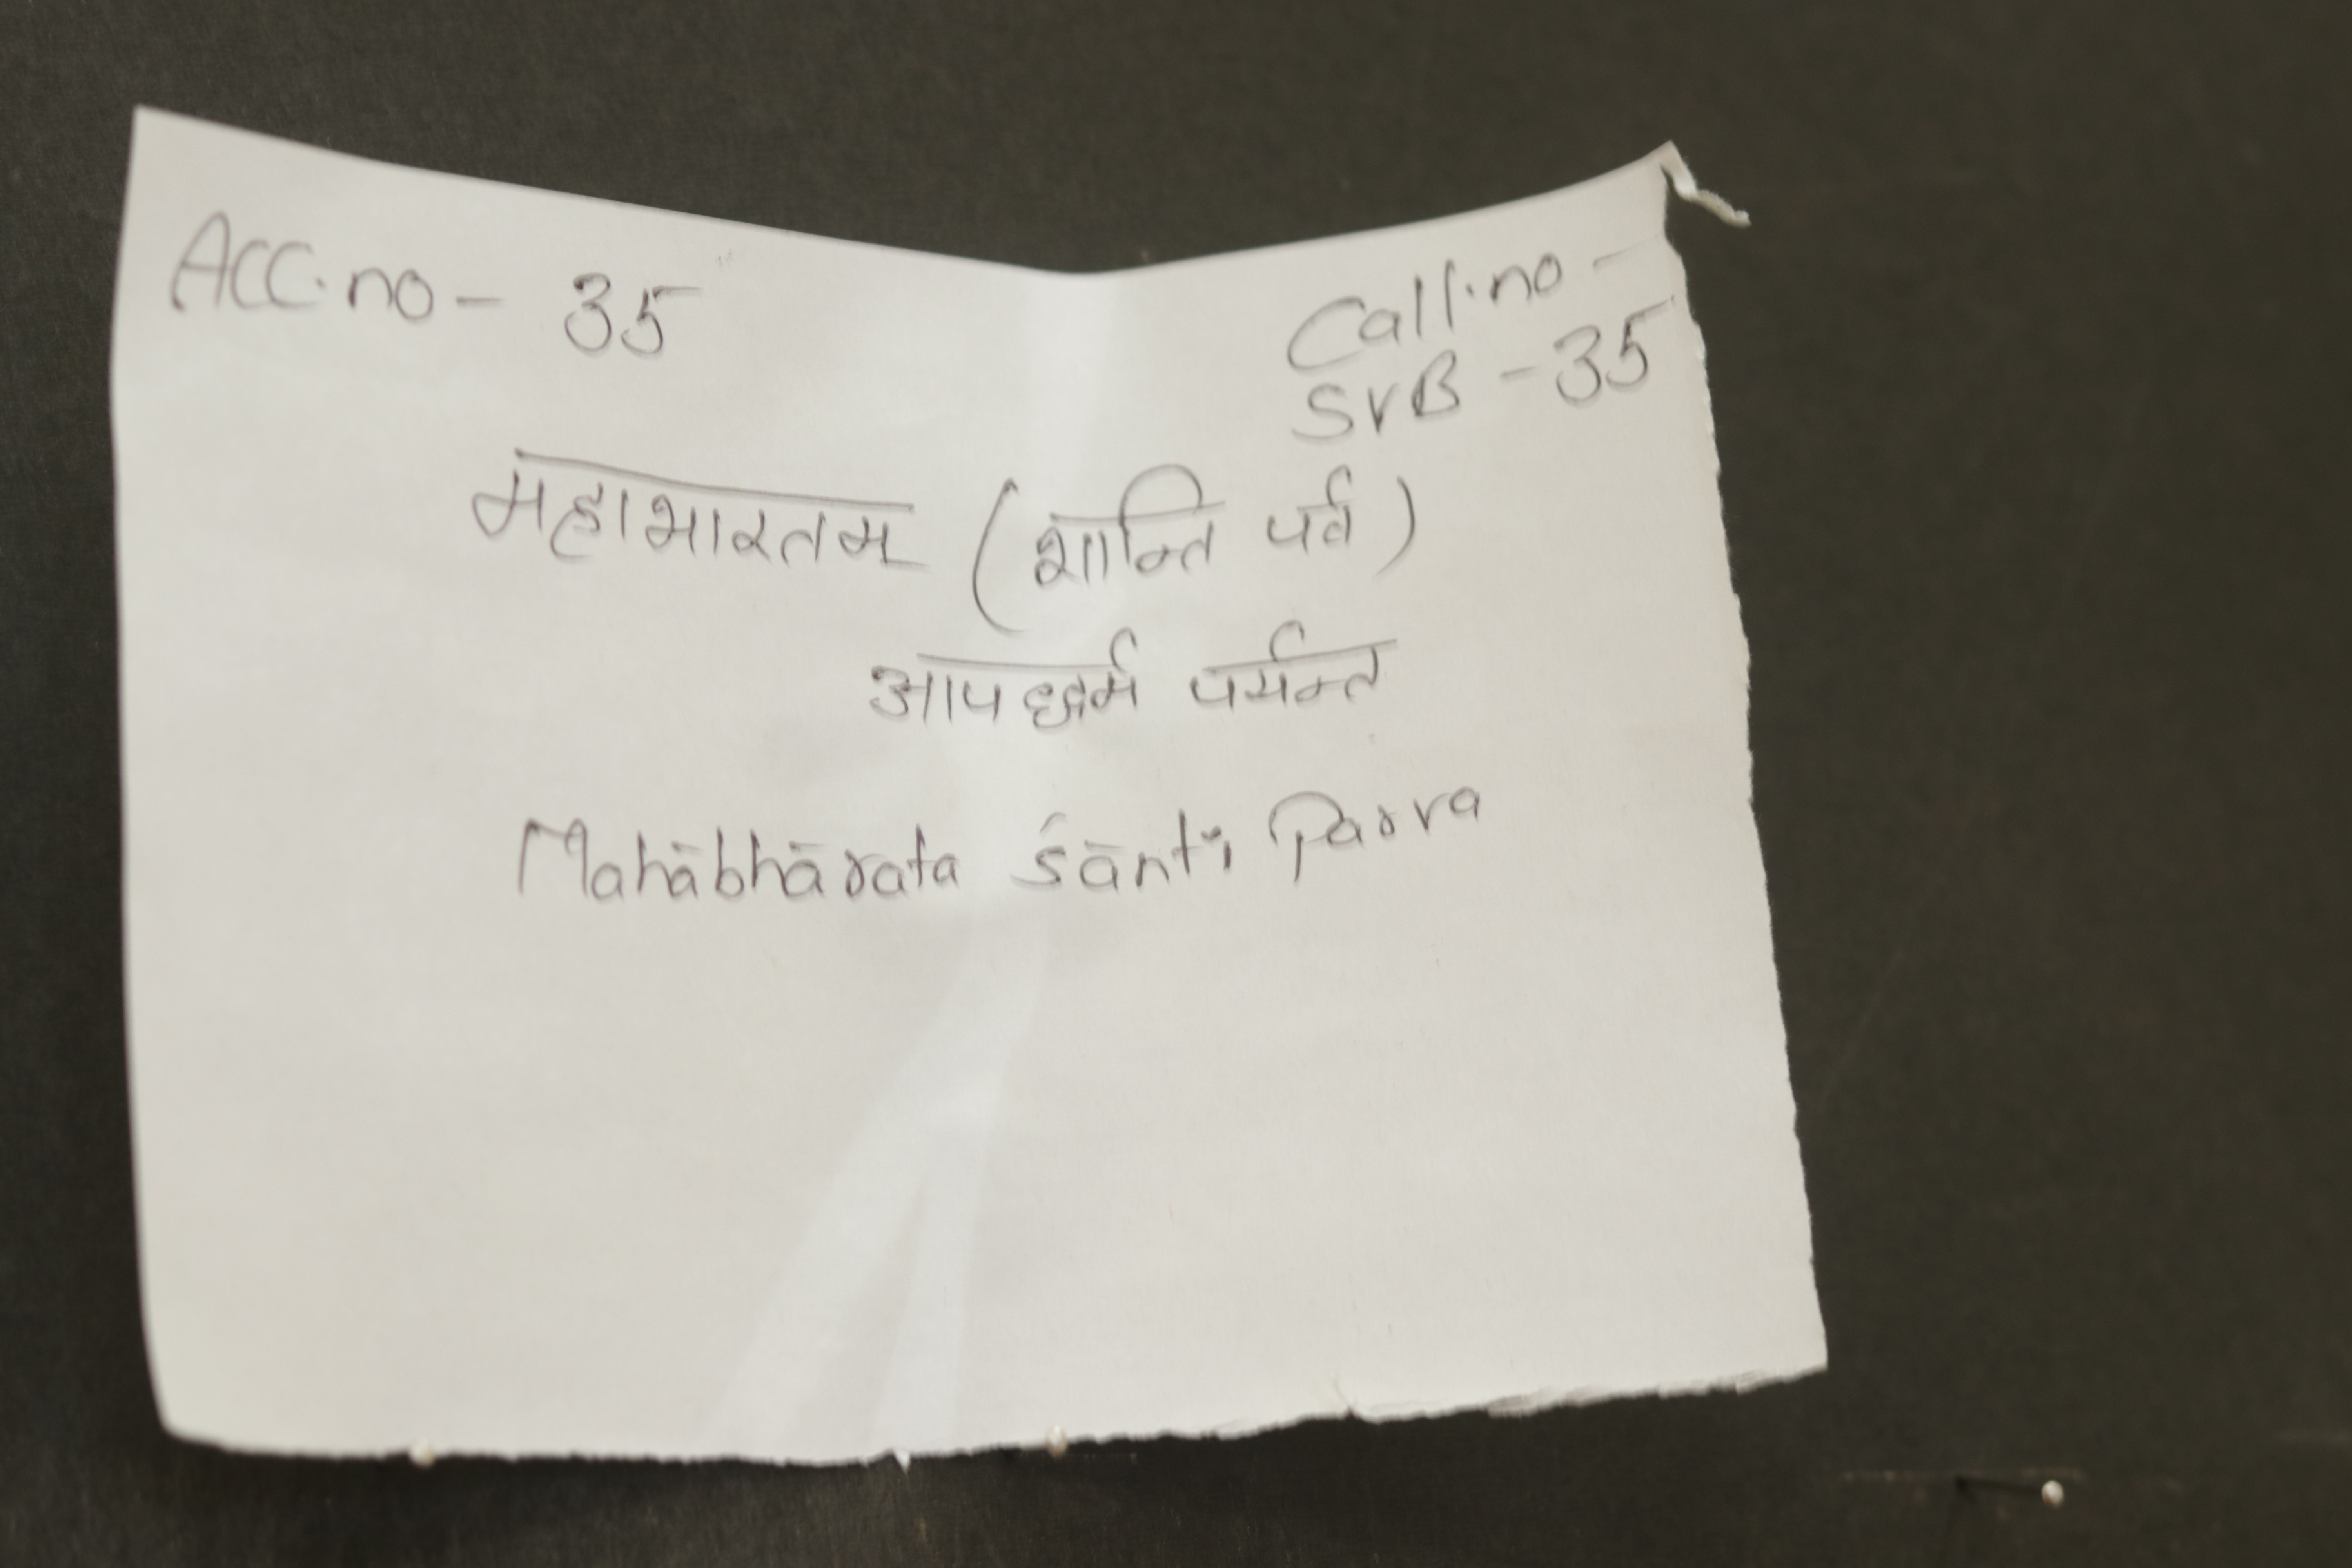 Acc.no - 35
Call.no -
SVB - 35
महाभारतम् (शान्ति पर्व)
आपद्धर्म पर्यन्त
Mahābhārata Śānti Parva